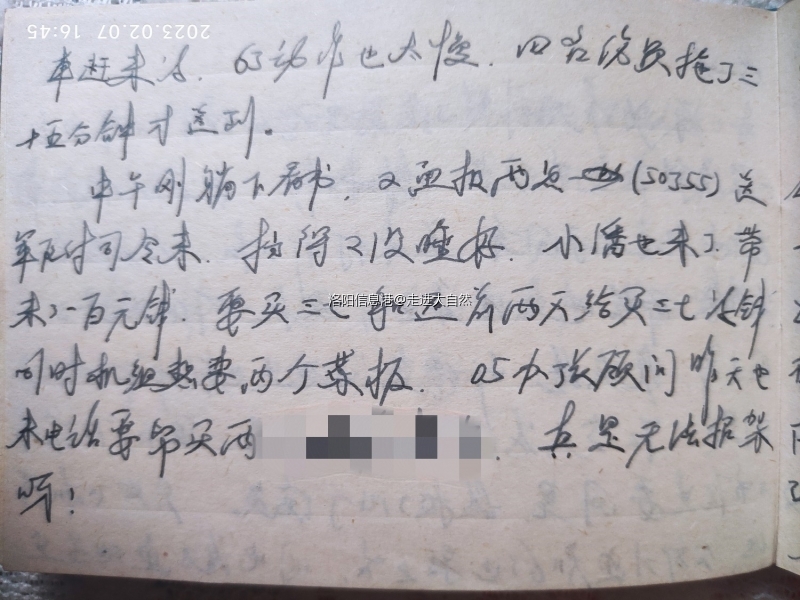 2023.02.07 16:45
车赶来了. 65动作也太慢. 四名伤员拖了三
十五分钟才送到。
中午刚躺下看书, 又通报两点 (50355) 送
军区付司令来. 搞得又没睡好. 小潘也来了. 带
来了一百元钱. 要买三七和 前两天给买三七 钱
同时机组想要两个菜板. 05办张顾问昨天也
来电话要帮买两 . 真是无法招架
呀!
洛阳信息港@走进大自然